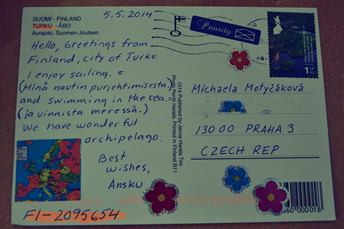 SUOMI - FINLAND
TURKU - ÅBO
Aurajoki, Suomen Joutsen
5.5.2014
Priority
Hello, Greetings from
Finland, city of Turku.
I enjoy sailing. =
(Minä nautin purjehtimisesta)
and swimming in the sea. =
(ja uinnista meressä.)
We have wonderful
archipelago.
Best
wishes,
Ansku
FI-2095654
Michaela Motyčáková
13000 PRAHA 3
CZECH REP